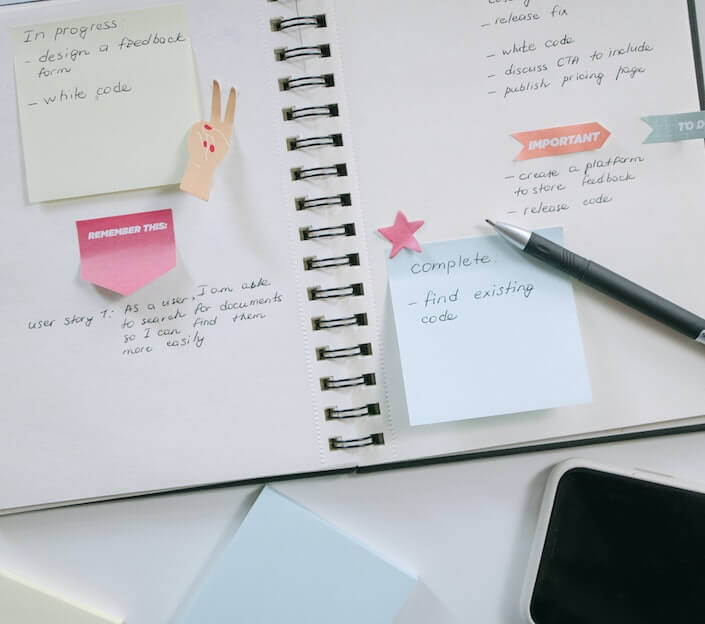 In progress
- design a feedback
form
- white code
REMEMBER THIS:
user story 1: As a user, I am able
to search for documents
so I can find them
more easily
- release fix
- white code
- discuss CTA to include
- publish pricing page
IMPORTANT
TO D
- create a platform
to store feedback
- release code
complete.
- find existing
code